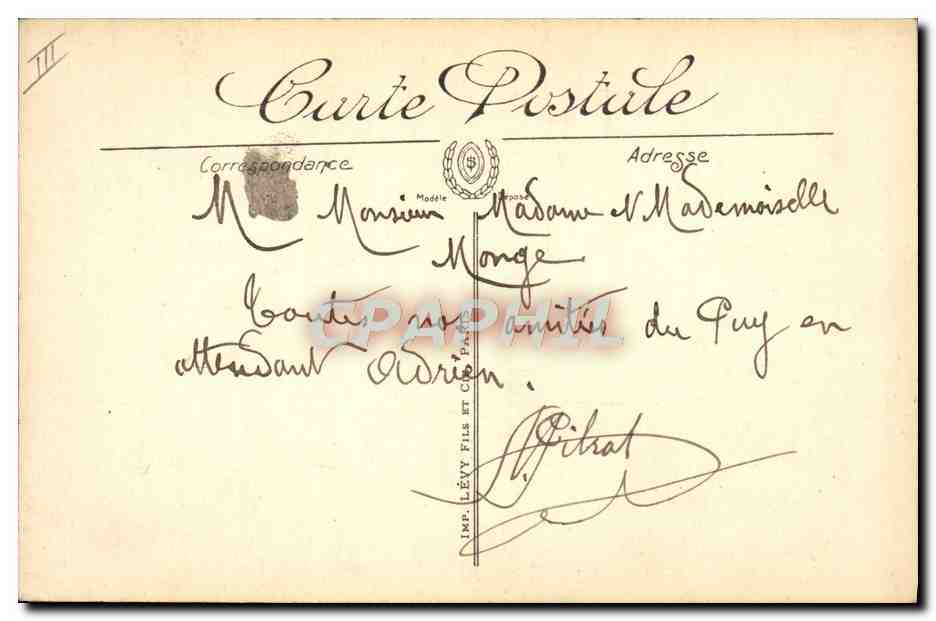 III
Carte Postale
Correspondance
Adresse
Modèle déposé
M Monsieur Madame & Mademoiselle
Monge
Toutes nos amitiés du Puy en
attendant Adrien.
Pilrat
IMP. LÉVY FILS ET CIE PARIS
CPAPHIL